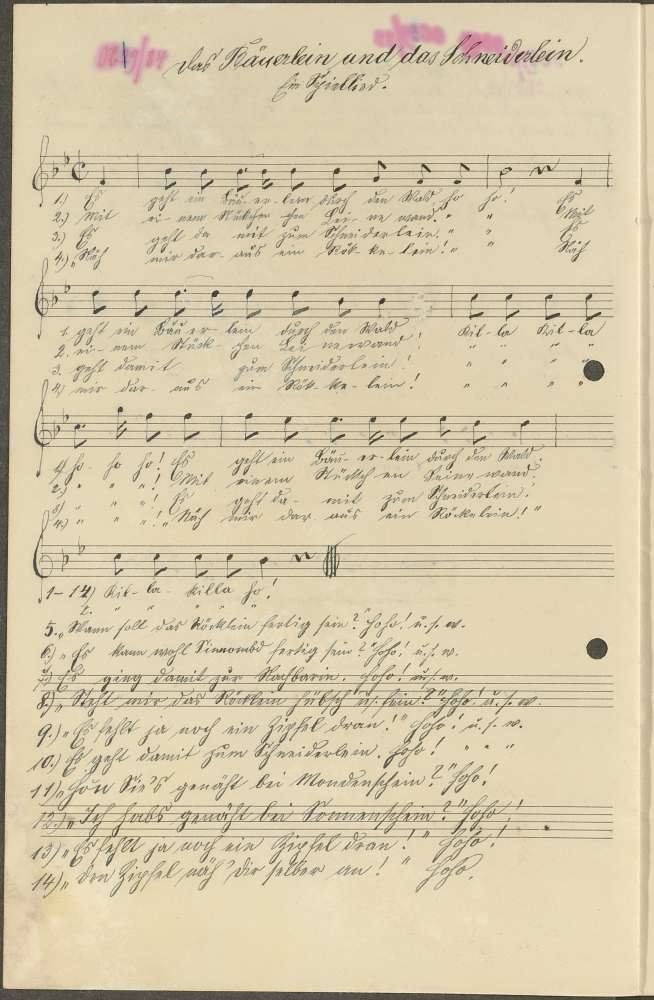 Das Bäuerlein und das Schneiderlein.
Ein Spiellied.
1.) Es geht ein Bäu-er-lein durch den Wald ho ho! Es
2.) Mit ei-nem Stükchen Lei-ne wand. " " Mit
3.) Es geht da mit zum Schneiderlein. " " Es
4.) „Näh mir dar-aus ein Rök-ke-lein! " " Näh
1. geht ein Bäu er-lein durch den Wald! Kil-la Kil-la
2. ei-nem Stück-chen Lei newand! " " " "
3. geht damit zum Schneiderlein! " " " "
4. mir dar-aus ein Rök-ke-lein! " " " "
1. ho-ho ho! Es geht ein Bäu-er-lein durch den Wald.
2.) " " "! Mit einem Stückch-en Leine wand.
3) " " "! Es geht da-mit zum Schneiderlein.
4.) " " "! „Näh mir dar-aus ein Röckelein! "
1-14) Kil-la-killa ho!
5. „Wann soll das Röcklein fertig sein?" Hoho! u.s.w.
6.) „Es kann wohl fertig sein?" Hoho! u.s.w.
7.) Es ging damit zur Nachbarin. Hoho! u.s.w.
8.) „Steht mir das Röcklein hübsch u. fein?" Hoho! u.s.w.
9.) „Es fehlt ja noch ein Zipfel dran!" Hoho! u.s.w.
10.) Es geht damit zum Schneiderlein. Hoho! " " "
11) „Hon Sie's genäht bei Mondenschein?" Hoho!
12.) „Ich habs genäht bei Sonnenschein?" Hoho!
13) „Es fehlt ja noch ein Zipfel dran!" Hoho!
14) „Den Zipfel näh' dir selber an!" Hoho.